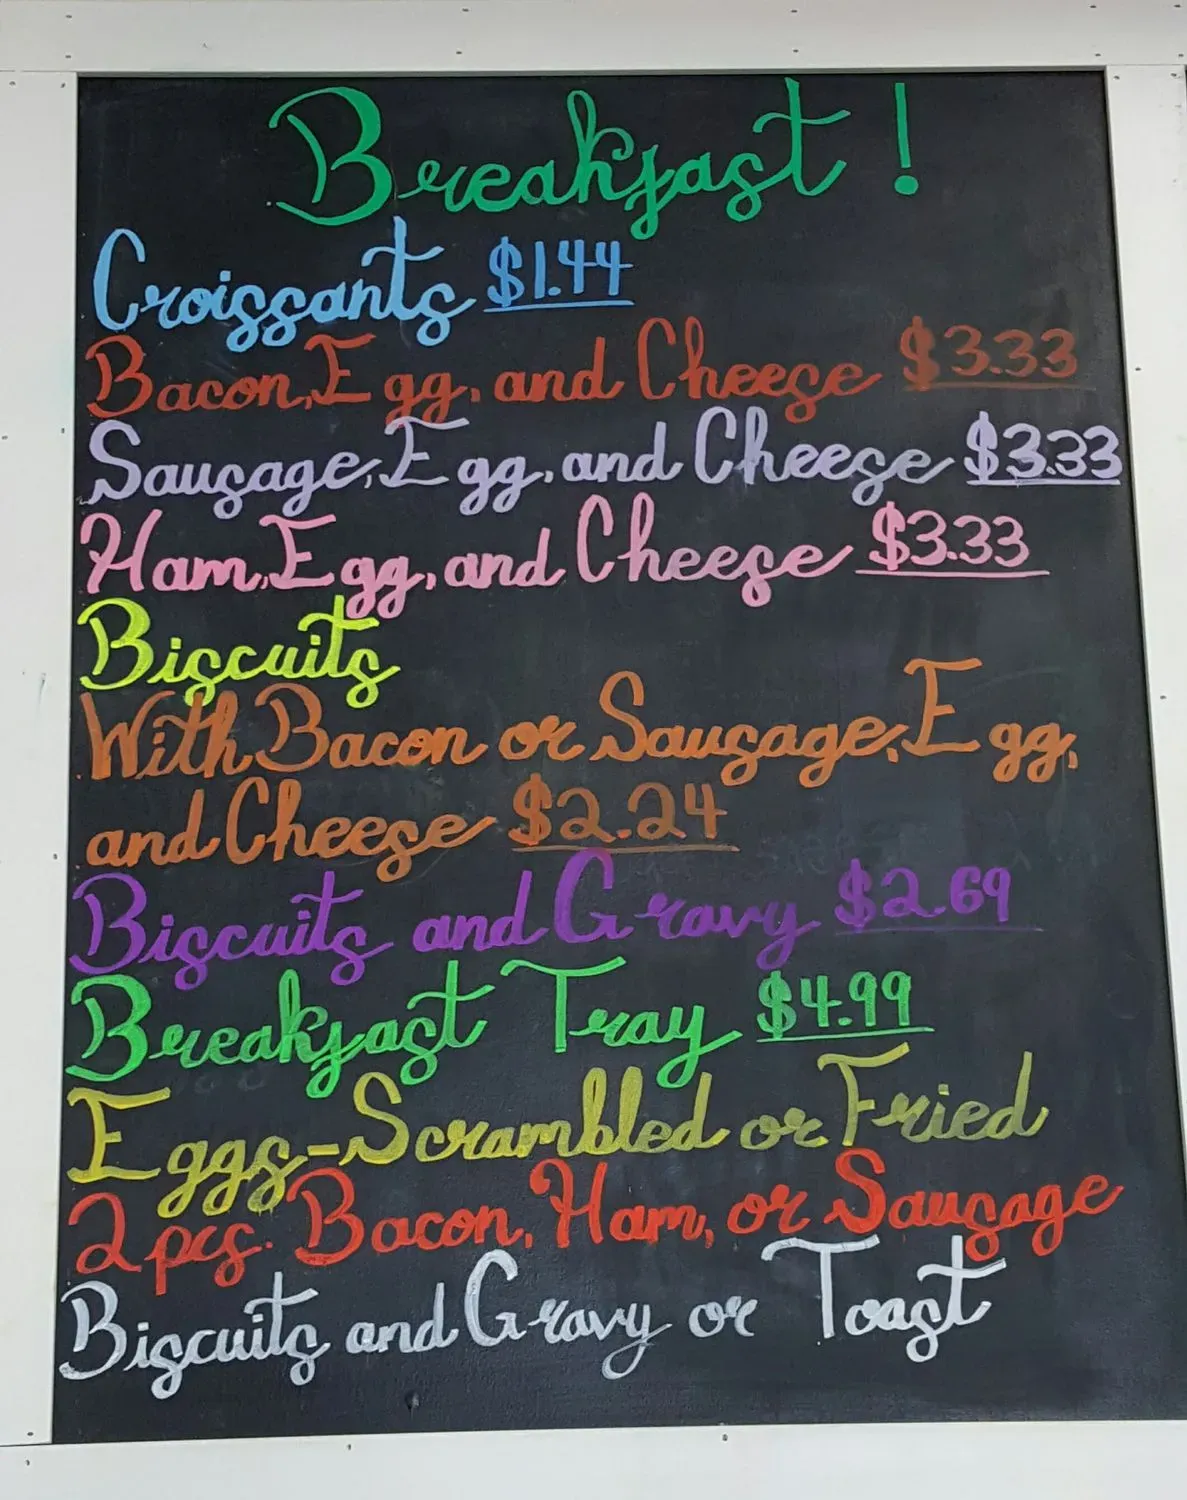 Breakfast!
Croissants $1.44
Bacon, Egg, and Cheese $3.33
Sausage, Egg, and Cheese $3.33
Ham, Egg, and Cheese $3.33
Biscuits
With Bacon or Sausage, Egg,
and Cheese $2.24
Biscuits and Gravy $2.69
Breakfast Tray $4.99
Eggs-Scrambled or Fried
2 pcs. Bacon, Ham, or Sausage
Biscuits and Gravy or Toast